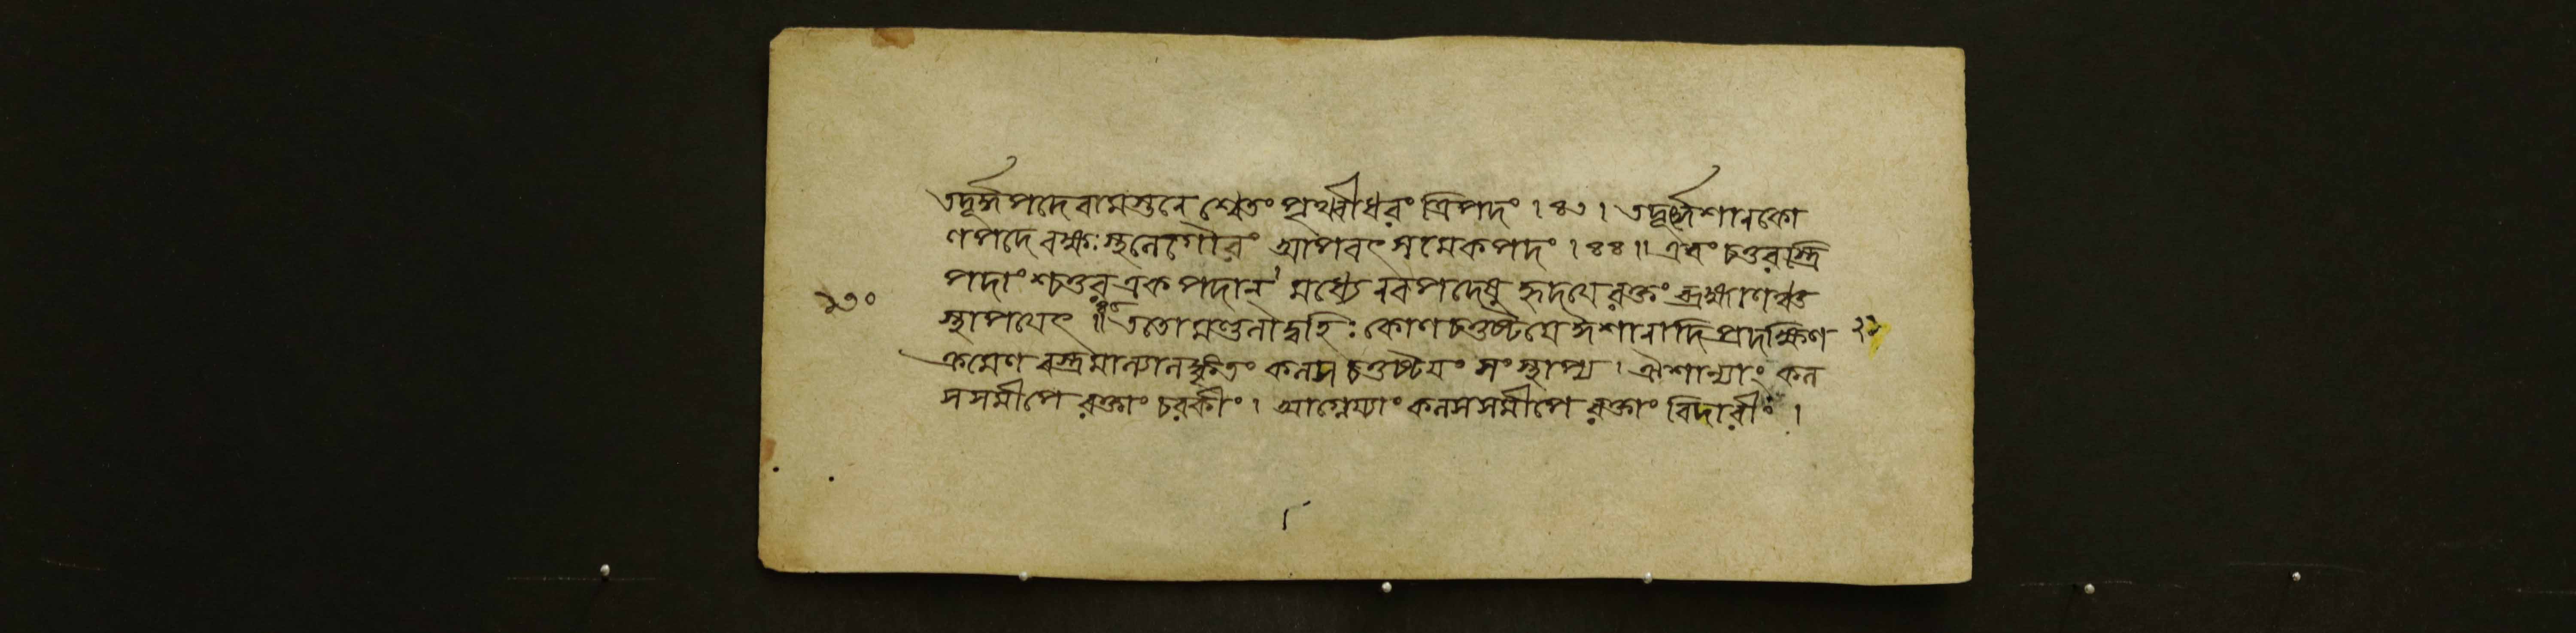 তদূর্দ্ধপদে বামস্তনে শ্বেতং পৃথ্বীধরং ত্রিপদং । ৪৩ । তদূর্দ্ধেশানকো
ণপদে বক্ষঃস্থলে গৌরং আপবৎসমেকপদং । ৪৪ ॥ এবং চতুরস্ত্রি
পদাংশ্চতুর একপদান্ মধ্যে নবপদেষু হৃদয়ে রক্তং ব্রহ্মাণঞ্চ
স্থাপয়েৎ ॥ ততো মণ্ডলাদ্বহিঃ কোণচতুষ্টয়ে ঈশানাদি প্রদক্ষিণ
ক্রমেণ বস্ত্রমাল্যালঙ্কৃতং কলসচতুষ্টয়ং সংস্থাপ্য । ঐশান্যাং কল
সসমীপে রক্তাং চরকীং । আগ্নেয্যাং কলসসমীপে রক্তাং বিদারীং ।